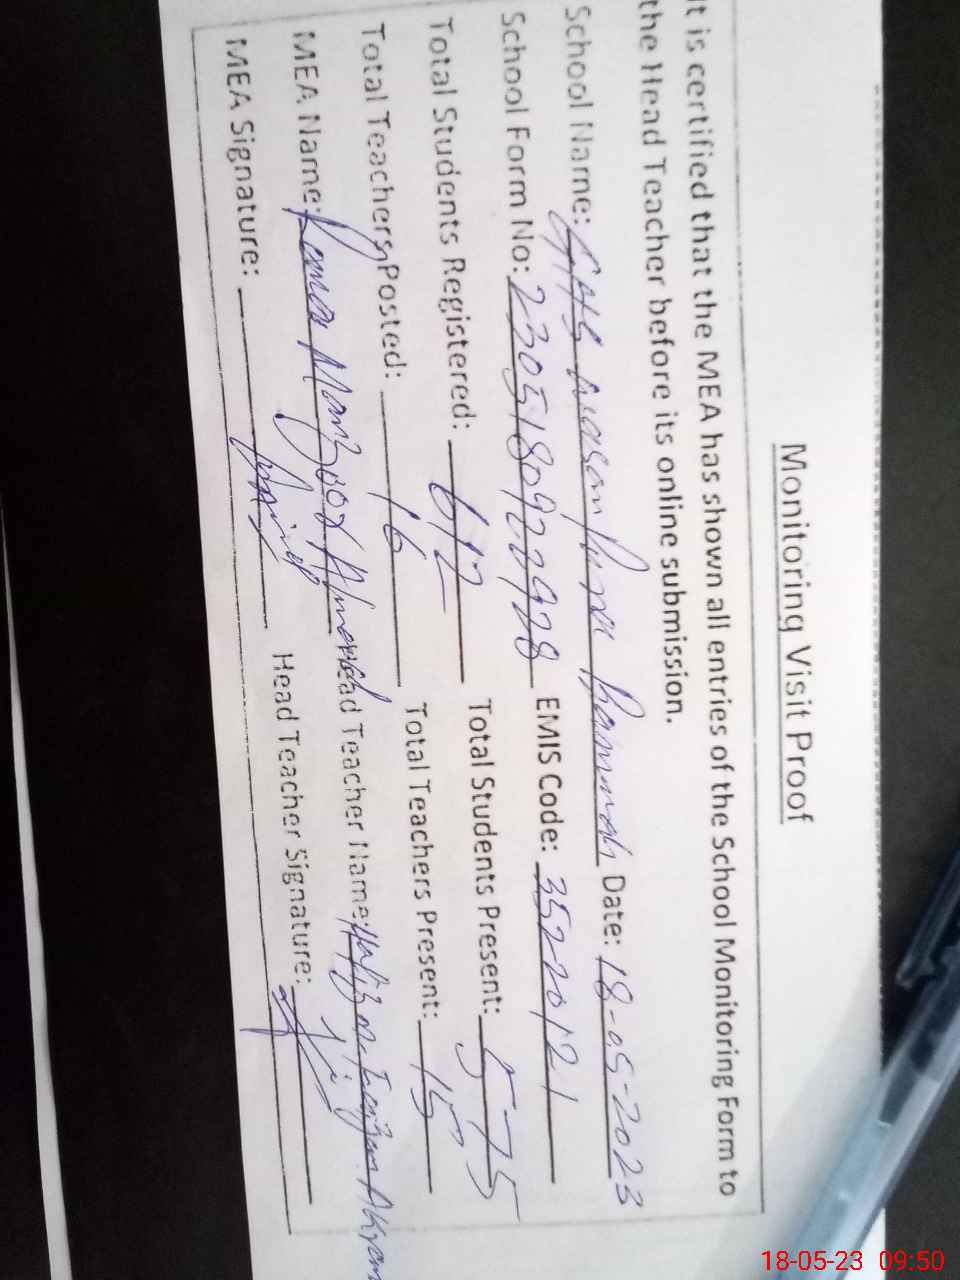 Monitoring Visit Proof
It is certified that the MEA has shown all entries of the School Monitoring Form to
the Head Teacher before its online submission.
School Name: Date: 18-05-2023
School Form No: 23051809222928 EMIS Code: 35220121
Total Students Registered: 612 Total Students Present: 575
Total Teachers Posted: 16 Total Teachers Present: 15
MEA Name: Manzoor Ahmed Head Teacher Name: Akram
MEA Signature: Head Teacher Signature:
18-05-23 09:50